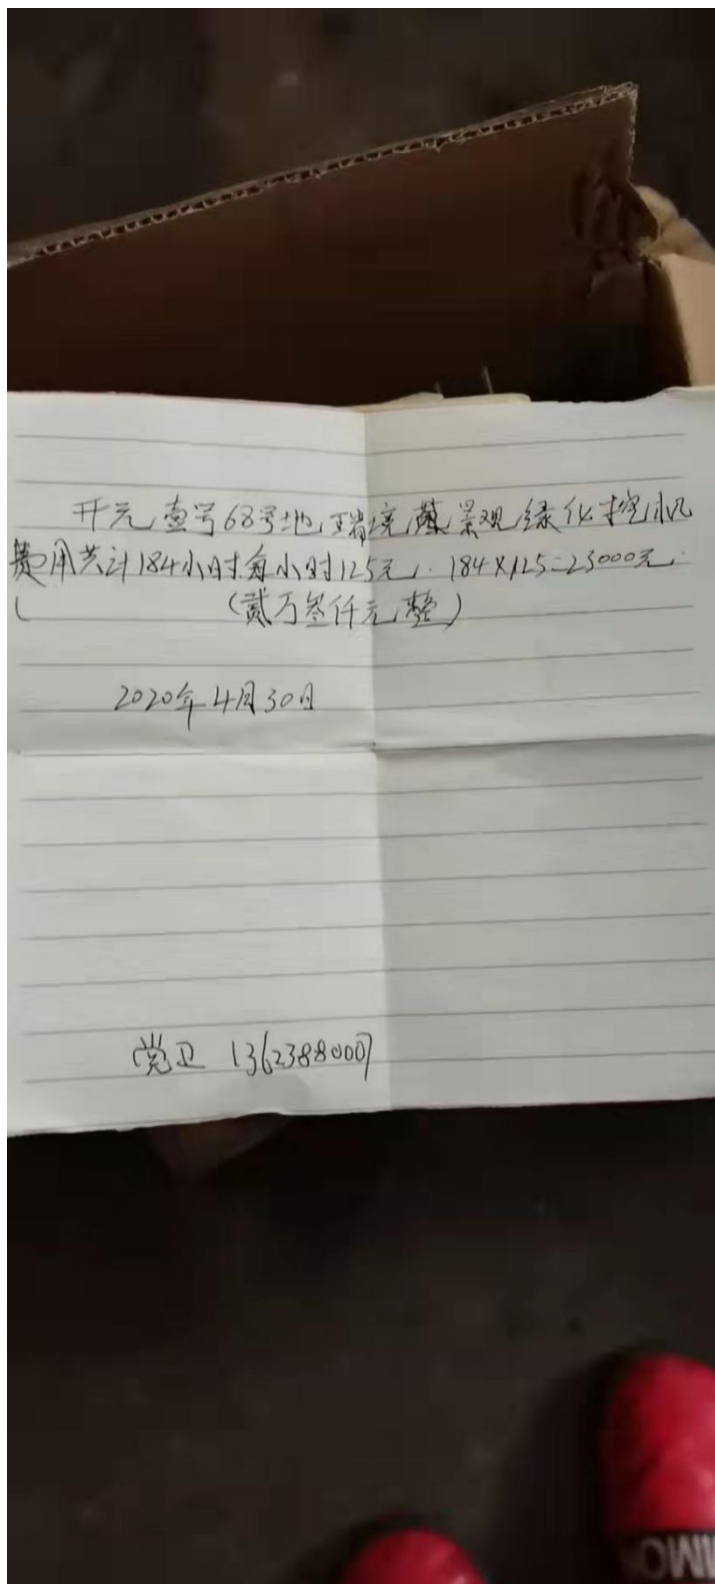 开元壹号68号地瑞境 景观绿化挖机
费用共计184小时.每小时125元. 184×125=23000元.
(贰万叁仟元整)
2020年4月30日
党卫 13623880007